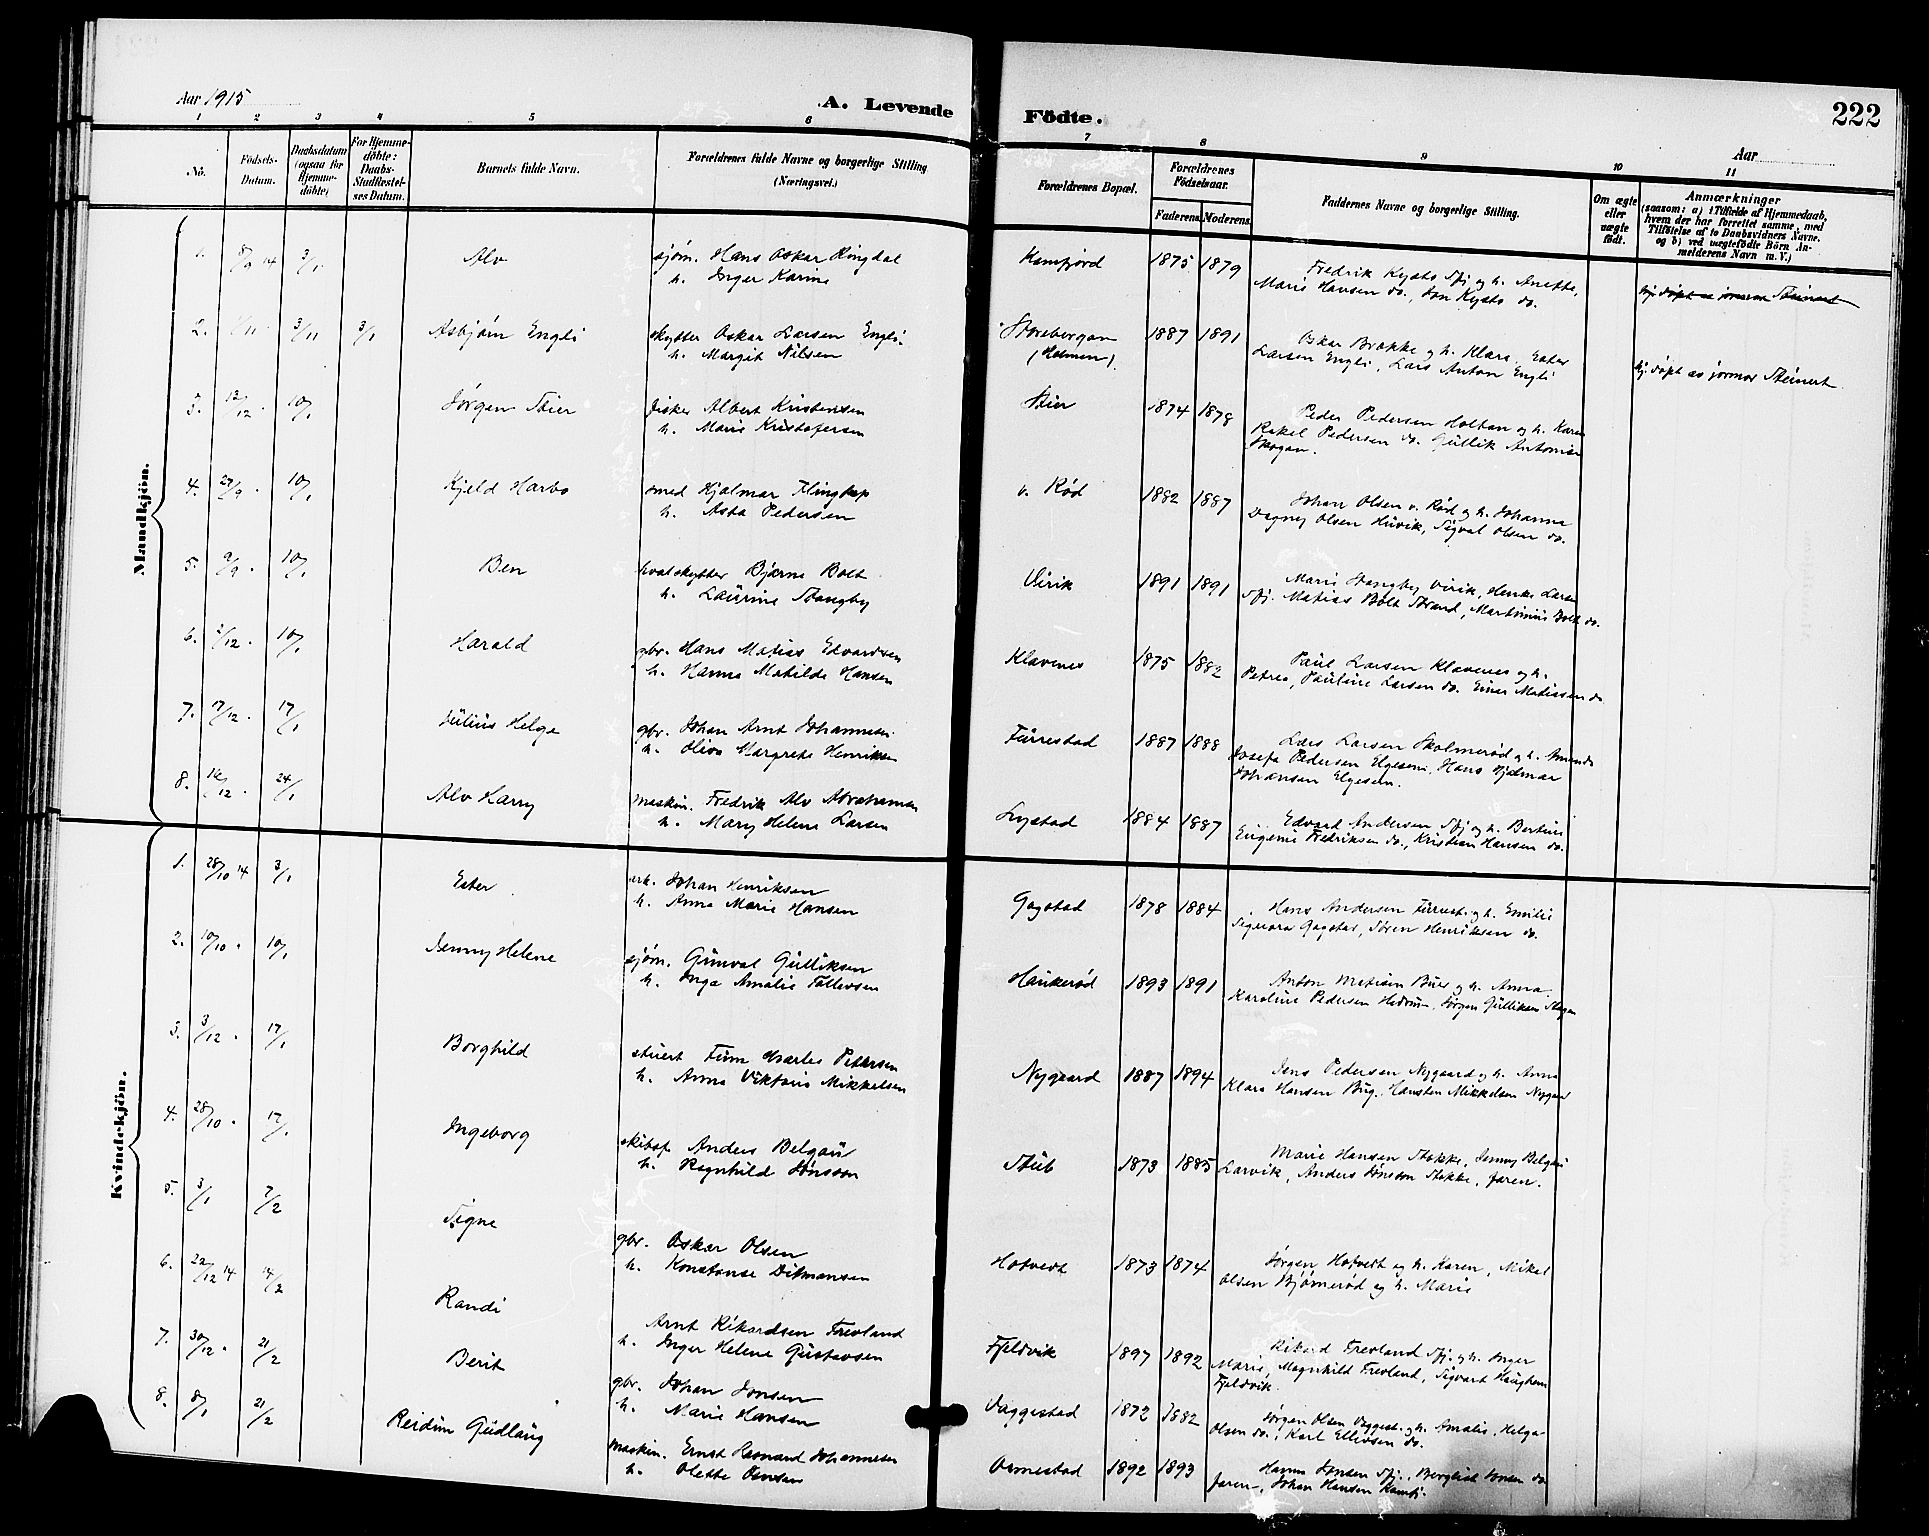 Aar 1915
A. Levende
Födte.
222
Aar
1 2 3 4 5 6
7 8 9 10 11
No.
Födsels-
Datum.
Daabsdatum
(ogsaa for
Hjemme-
döbte)
For Hjemme-
döbte:
Daabs-
Stadfæstel-
ses Datum.
Barnets fulde Navn.
Forældrenes fulde Navne og borgerlige Stilling
(Næringsvei.)
Forældrenes Bopæl.
Forældrenes
Födselsaar.
Faderens. Moderens.
Faddernes Navne og borgerlige Stilling.
Om ægte
eller
uægte
födt.
Anmærkninger
(saasom: a) i Tilfælde af Hjemmedaab,
hvem der har forrettet samme, med
Tilföielse af to Daabsvidners Navne.
og b) ved uægtefödte Börn An-
melderens Navn m. V.)
Mandkjön.
1. 8/9 14 3/1 Alv sjøm. Hans Oskar Ringdal
h. Inger Karine
Kamfjord 1875 1879 Fredrik Kysto Sfj og h. Anette,
Marie Hansen do., Jon Kysto do.
hj. døpt av jormor Steinert
2. 1/11 3/11 3/1 Asbjørn Engli skytter Oskar Larsen Engli
h. Margit Nilsen
Storebergan
(Holmen).
1887 1891 Oskar Brække og h. Klara, Ester
Larsen Engli, Lars Anton Engli
hj. døpt av jormor Steinert.
3. 12/12 10/1 Jørgen Stier fisker Albert Kristensen
h. Marie Kristofersen
1874 1878 Peder Pedersen Holtan og h. Karen
Rakel Pedersen do. Gullik Antonisen
Skogan.
4. 27/9 10/1 Kjeld Harbo smed Hjalmar Klingtop
h. Asta Pedersen
v. Rød 1882 1887 Johan Olsen v. Rød og h. Johanna
Dagney Olsen Huvik, Sigval Olsen do.
5. 9/9 10/1 Ben hvalskytter Bjarne Bolt
h. Laurine Stangby
Virik 1891 1891 Marie Stangby Virik, Henke Larsen
Sfj. Matias Bolt Strand, Martinius Bolt do.
6. 2/12 10/1 Harald gbr. Hans Matias Edvardsen
h. Hanna Matilde Hansen
Klavenes 1875 1882 Paul Larsen Klavenes og h.
Petrea, Pauline Larsen do. Einar Matiassen do
7. 17/12 17/1 Julius Helge gbr. Johan Arnt Johannesen
h. Oliva Margrete Henriksen
Furrestad 1887 1888 Lars Larsen Skolmerød og h. Amanda
Josefa Pedersen Elgesem, Hans Hjalmar
Johansen Elgesem.
8. 14/12 24/1 Alv Harry maskin. Fredrik Alv Abrahamsen
h. Mary Helene Larsen
Lystad 1884 1887 Edvart Andersen Sfj og h. Bertine
Eugenie Fredriksen do., Kristian Hansen do.
Kvindekjön.
1. 28/10 14 3/1 Ester arb. Johan Henriksen
h. Anna Marie Hansen
Gogstad 1878 1884 Hans Andersen Furrest. og h. Emilie
Gogstad, Søren Henriksen do.
2. 10/10 10/1 Jenny Helene sjøm. Gunval Gulliksen
h. Inga Amalie Tollevsen
Haukerød 1893 1891 Anton Matisen Buer og h. Anna
Karoline Pedersen Hedrum, Jørgen Gulliksen
3. 3/12 17/1 Borghild stuert Finn Charles Petersen
h. Anna Viktoria Mikkelsen
Nygaard 1887 1894 Jens Pedersen Nygaard og h. Anna
Klara Hansen Bug. Hansten Mikkelsen Nygaar
4. 28/10 17/1 Ingeborg skibsf. Anders Belgau
h. Ragnhild Jonsson
Stub 1873 1885 Marie Hansen Stokke, Jenny Belgau
Larvik, Anders Jonsson Stokke, faren.
5. 3/1 7/2 Signe gbr. Oskar Olsen
h. Konstanse Ditmansen
Hotvedt 1873 1874 Jørgen Hotvedt og h. Karen, Mikal
Olsen Bjørnerød og h. Marie
6. 22/12 14 14/2 Randi Arnt Rikardsen Frevland
h. Inger Helene Gustavsen
Fjeldvik 1897 1892 Rikard Frevland Sfj. og h. Inger
Marie, Magnhild Frevland, Sigvart Haughem
Fjeldvik.
7. 30/12 21/2 Berit gbr. Johan Jonsen
h. Marie Hansen
Vaggestad 1872 1882 Jørgen Olsen Vaggest. og h. Amalie, Helga
Olsen do., Karl Ellevsen do.
8. 8/1 21/2 Reidun Gudlaug maskin. Ernst Ragnvard Johannesen
h. Olette Jensen
Ormestad 1892 1893 Hanna Jonsen Sfj., Bergliot Jonsen do
faren, Johan Hansen Kamfj.